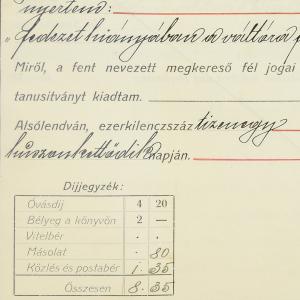 nyertem:
„fedezet hiányában a váltóra
Miről, a fent nevezett megkereső fél jogai
tanusitványt kiadtam.
Alsólendván, ezerkilenczszáz tizenegy
huszonkettődik napján.
Dijjegyzék:
Óvásdij 4 20
Bélyeg a könyvön 2 —
Vitelbér . .
Másolat . 80
Közlés és postabér 1. 35
Összesen 8. 35